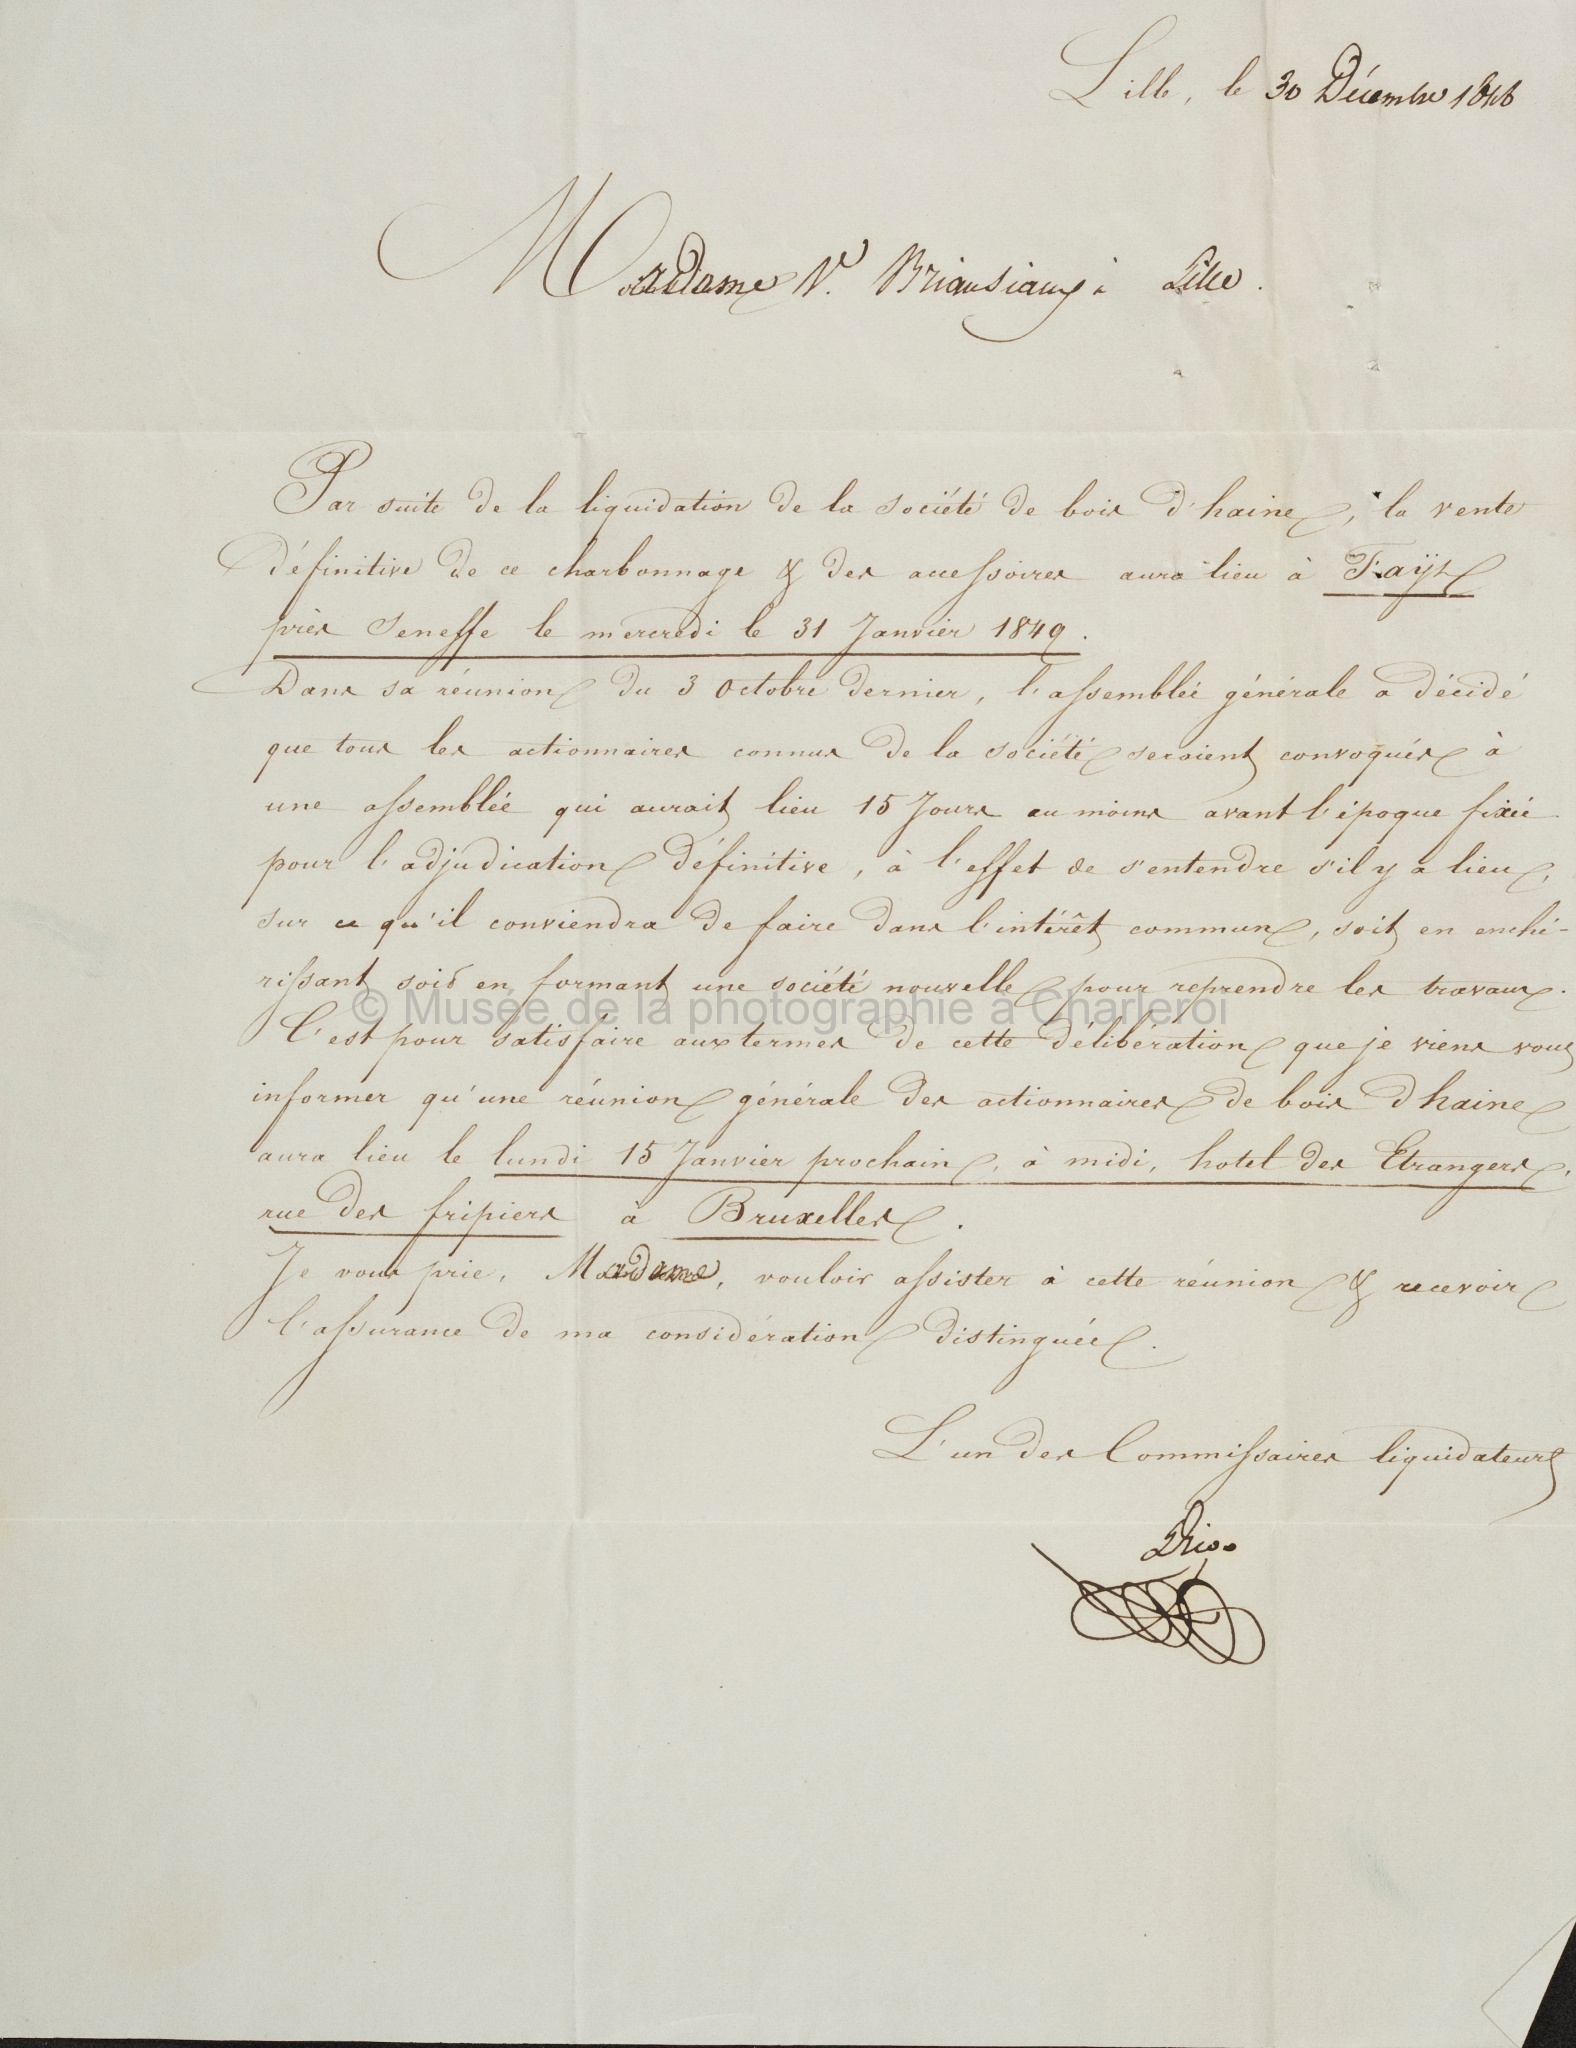 Lille, le 30 Décembre 1848
Madame Ve. Briansiaux à Lille.
Par suite de la liquidation de la société de bois d'haine, la vente
définitive de ce charbonnage & des accessoires aura lieu à Faÿt
près Seneffe le mercredi le 31 Janvier 1849.
Dans sa réunion du 3 Octobre dernier, l'assemblée générale a décidé
que tous les actionnaires connus de la société seraient convoqués à
une assemblée qui aurait lieu 15 Jours au moins avant l'époque fixée
pour l'adjudication définitive, à l'effet de s'entendre s'il y a lieu,
sur ce qu'il conviendra de faire dans l'intérêt commun, soit en enché-
rissant soit en formant une société nouvelle pour reprendre les travaux.
C'est pour satisfaire aux termes de cette délibération que je viens vous
informer qu'une réunion générale des actionnaires de bois d'haine
aura lieu le lundi 15 Janvier prochain, à midi, hotel des Etrangers,
rue des fripiers à Bruxelles.
Je vous prie, Madame, vouloir assister à cette réunion & recevoir
l'assurance de ma considération distinguée.
L'un des Commissaires liquidateurs
© Musée de la photographie à Charleroi